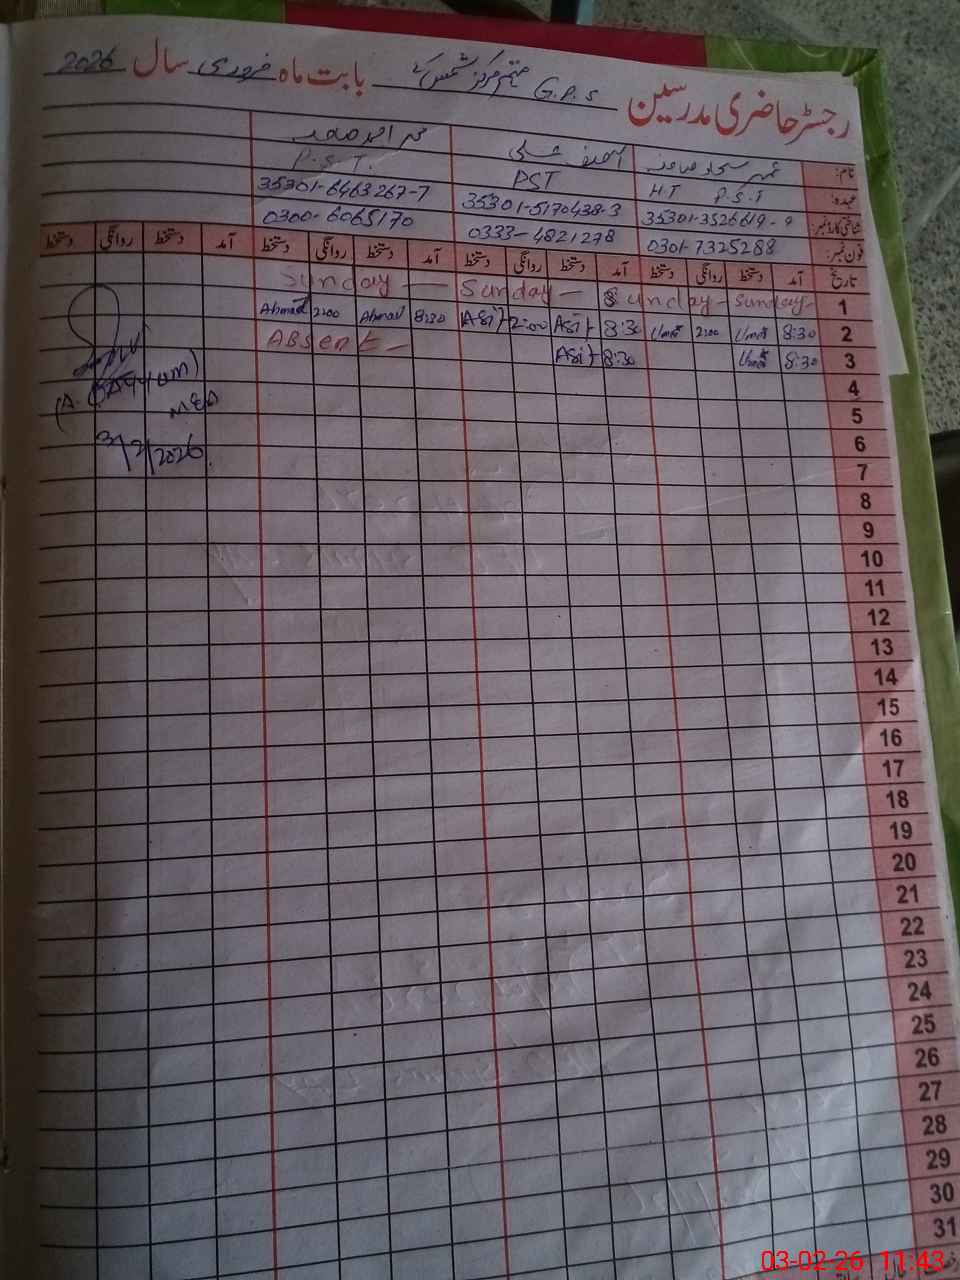 رجسٹر حاضری مدرسین G.P.S بابت ماہ فروری سال 2026
نام:
عہدہ: H.T P.S.T PST P.S.T.
شناختی کارڈ نمبر: 35301-3526619-9 35301-5170438-3 35301-6463267-7
فون نمبر: 0301-7325288 0333-4821278 0300-6065170
تاریخ آمد دستخط روانگی دستخط آمد دستخط روانگی دستخط آمد دستخط روانگی دستخط آمد دستخط روانگی دستخط
1 Sunday - Sunday - Sunday - Sunday -
2 8:30 Umar 2:00 Umar 8:30 Asif 2:00 Asif 8:30 Ahmad 2:00 Ahmad
3 8:30 Umar 8:30 Asif Absent -
4
5
6
7
8
9
10
11
12
13
14
15
16
17
18
19
20
21
22
23
24
25
26
27
28
29
30
31
(A. Qayyum)
3/2/2026
03-02-26 11:43